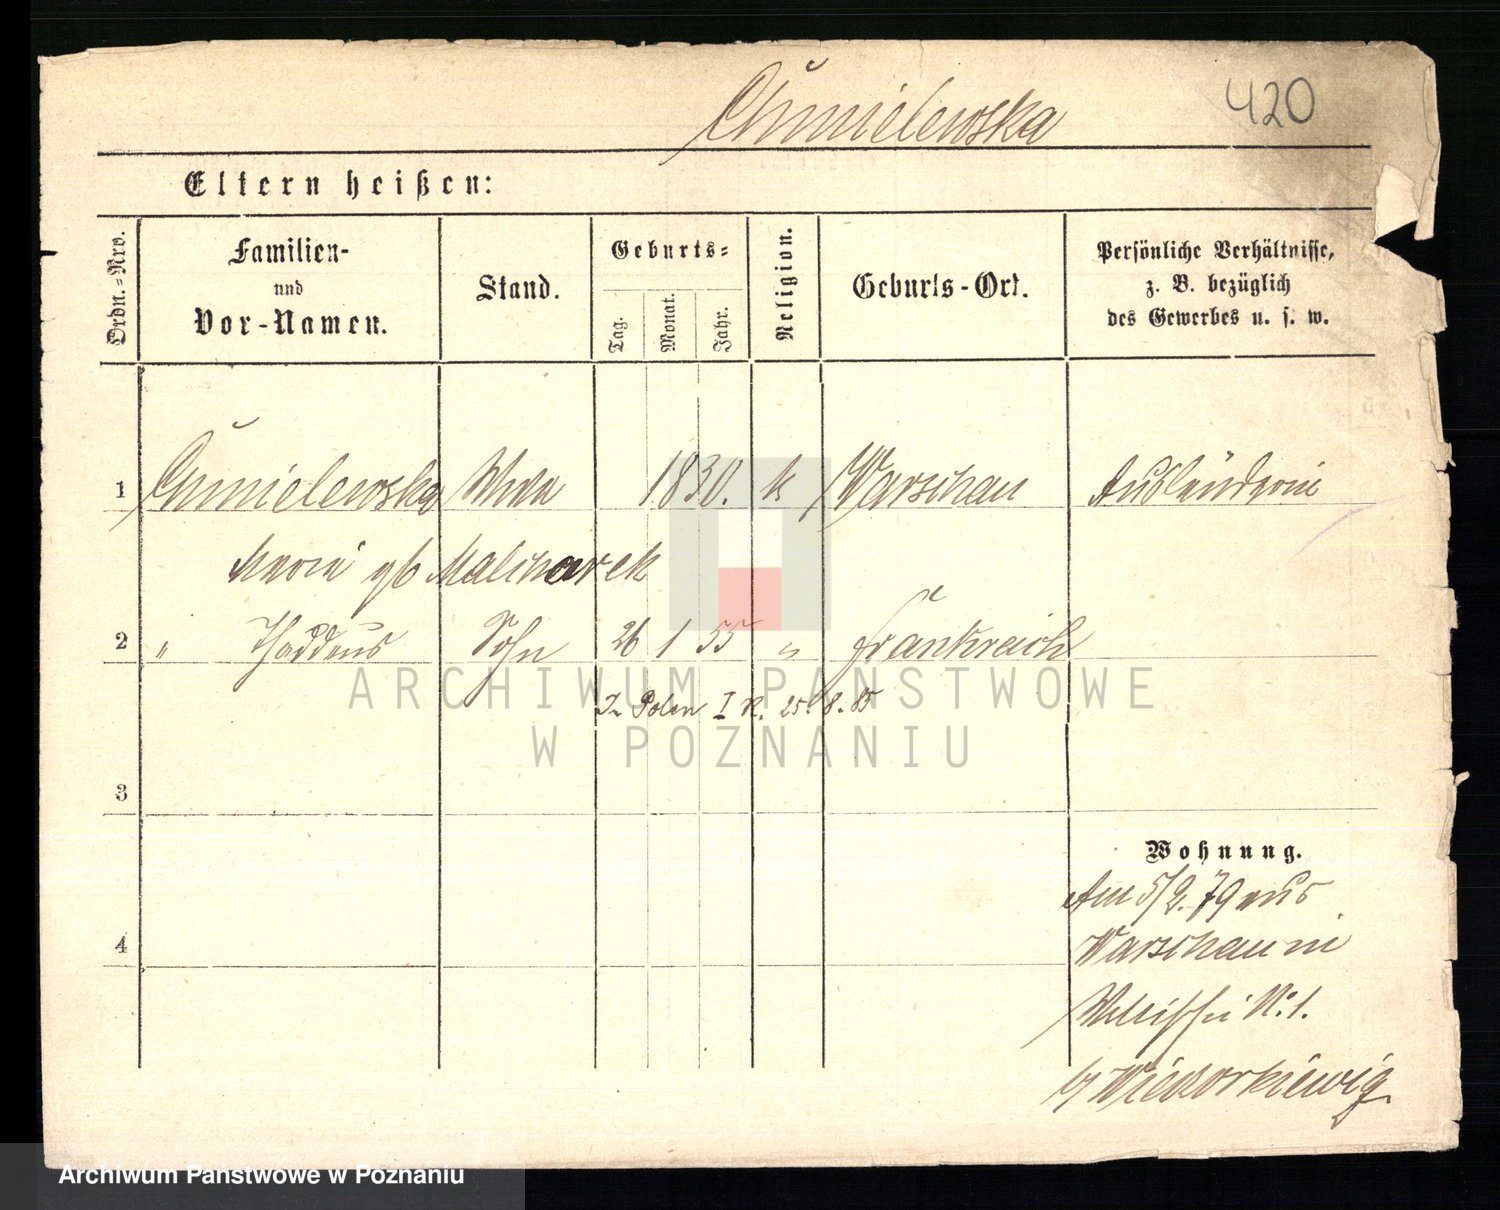 Chmielewska 420
Eltern heißen:
Ordn.-Nro. Familien- und Vor-Namen. Stand. Geburts= Tag. Monat. Jahr. Religion. Geburts-Ort. Persönliche Verhältnisse, z. B. bezüglich des Gewerbes u. s. w.
1 Chmielewska Wwe 1830. k Warschau Ausländerin
Maria gb
2 " Thaddeus Sohn 26 1 55 " Frankreich
In Polen I R. 25. 8. 85
3
Wohnung.
Am 5/2. 79 aus
4 Warschau in
No. 1.
ARCHIWUM PAŃSTWOWE
W POZNANIU
Archiwum Państwowe w Poznaniu